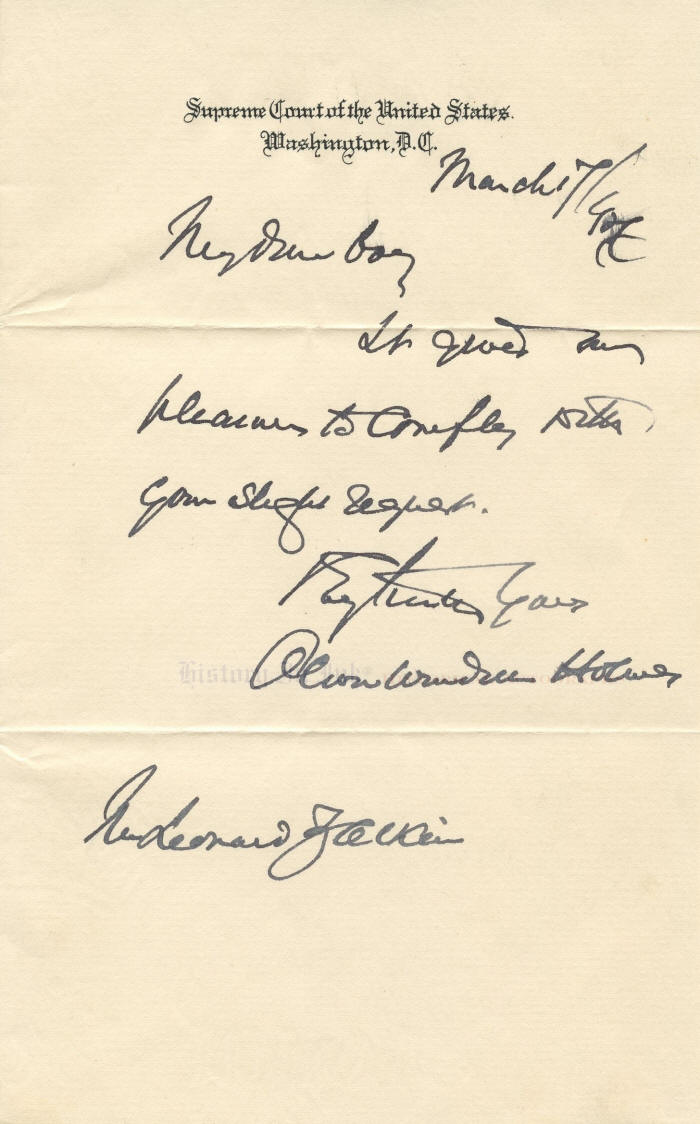 Supreme Court of the United States.
Washington, D.C.
March 17/
My dear Boy
It gives me
pleasure to comply with
your slight request.
Very truly yours
Oliver Wendell Holmes
History
Mr Leonard